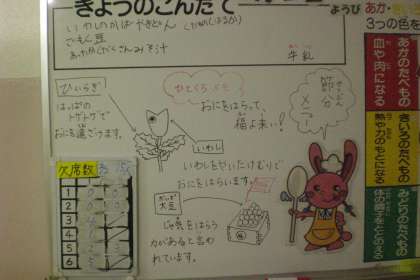 きょうのこんだて
ようび
あか・
3つの色を
いわしのかばやきどん
ごもく豆
牛乳
ひいらぎ
はっぱの
トゲトゲで
おにを遠ざけます。
やくくらメモ
おにをはらって、
福よ来い!
節分
せつぶん
メニュー
いわし
いわしをやいたけむりで
おにをはらいます。
大豆
じゃ気をはらう
力があると言わ
れています。
欠席数
1
2
3
4
5
6
あかのたべもの
血や肉になる
きいろのたべもの
熱や力のもとになる
みどりのたべもの
体の調子をととのえる